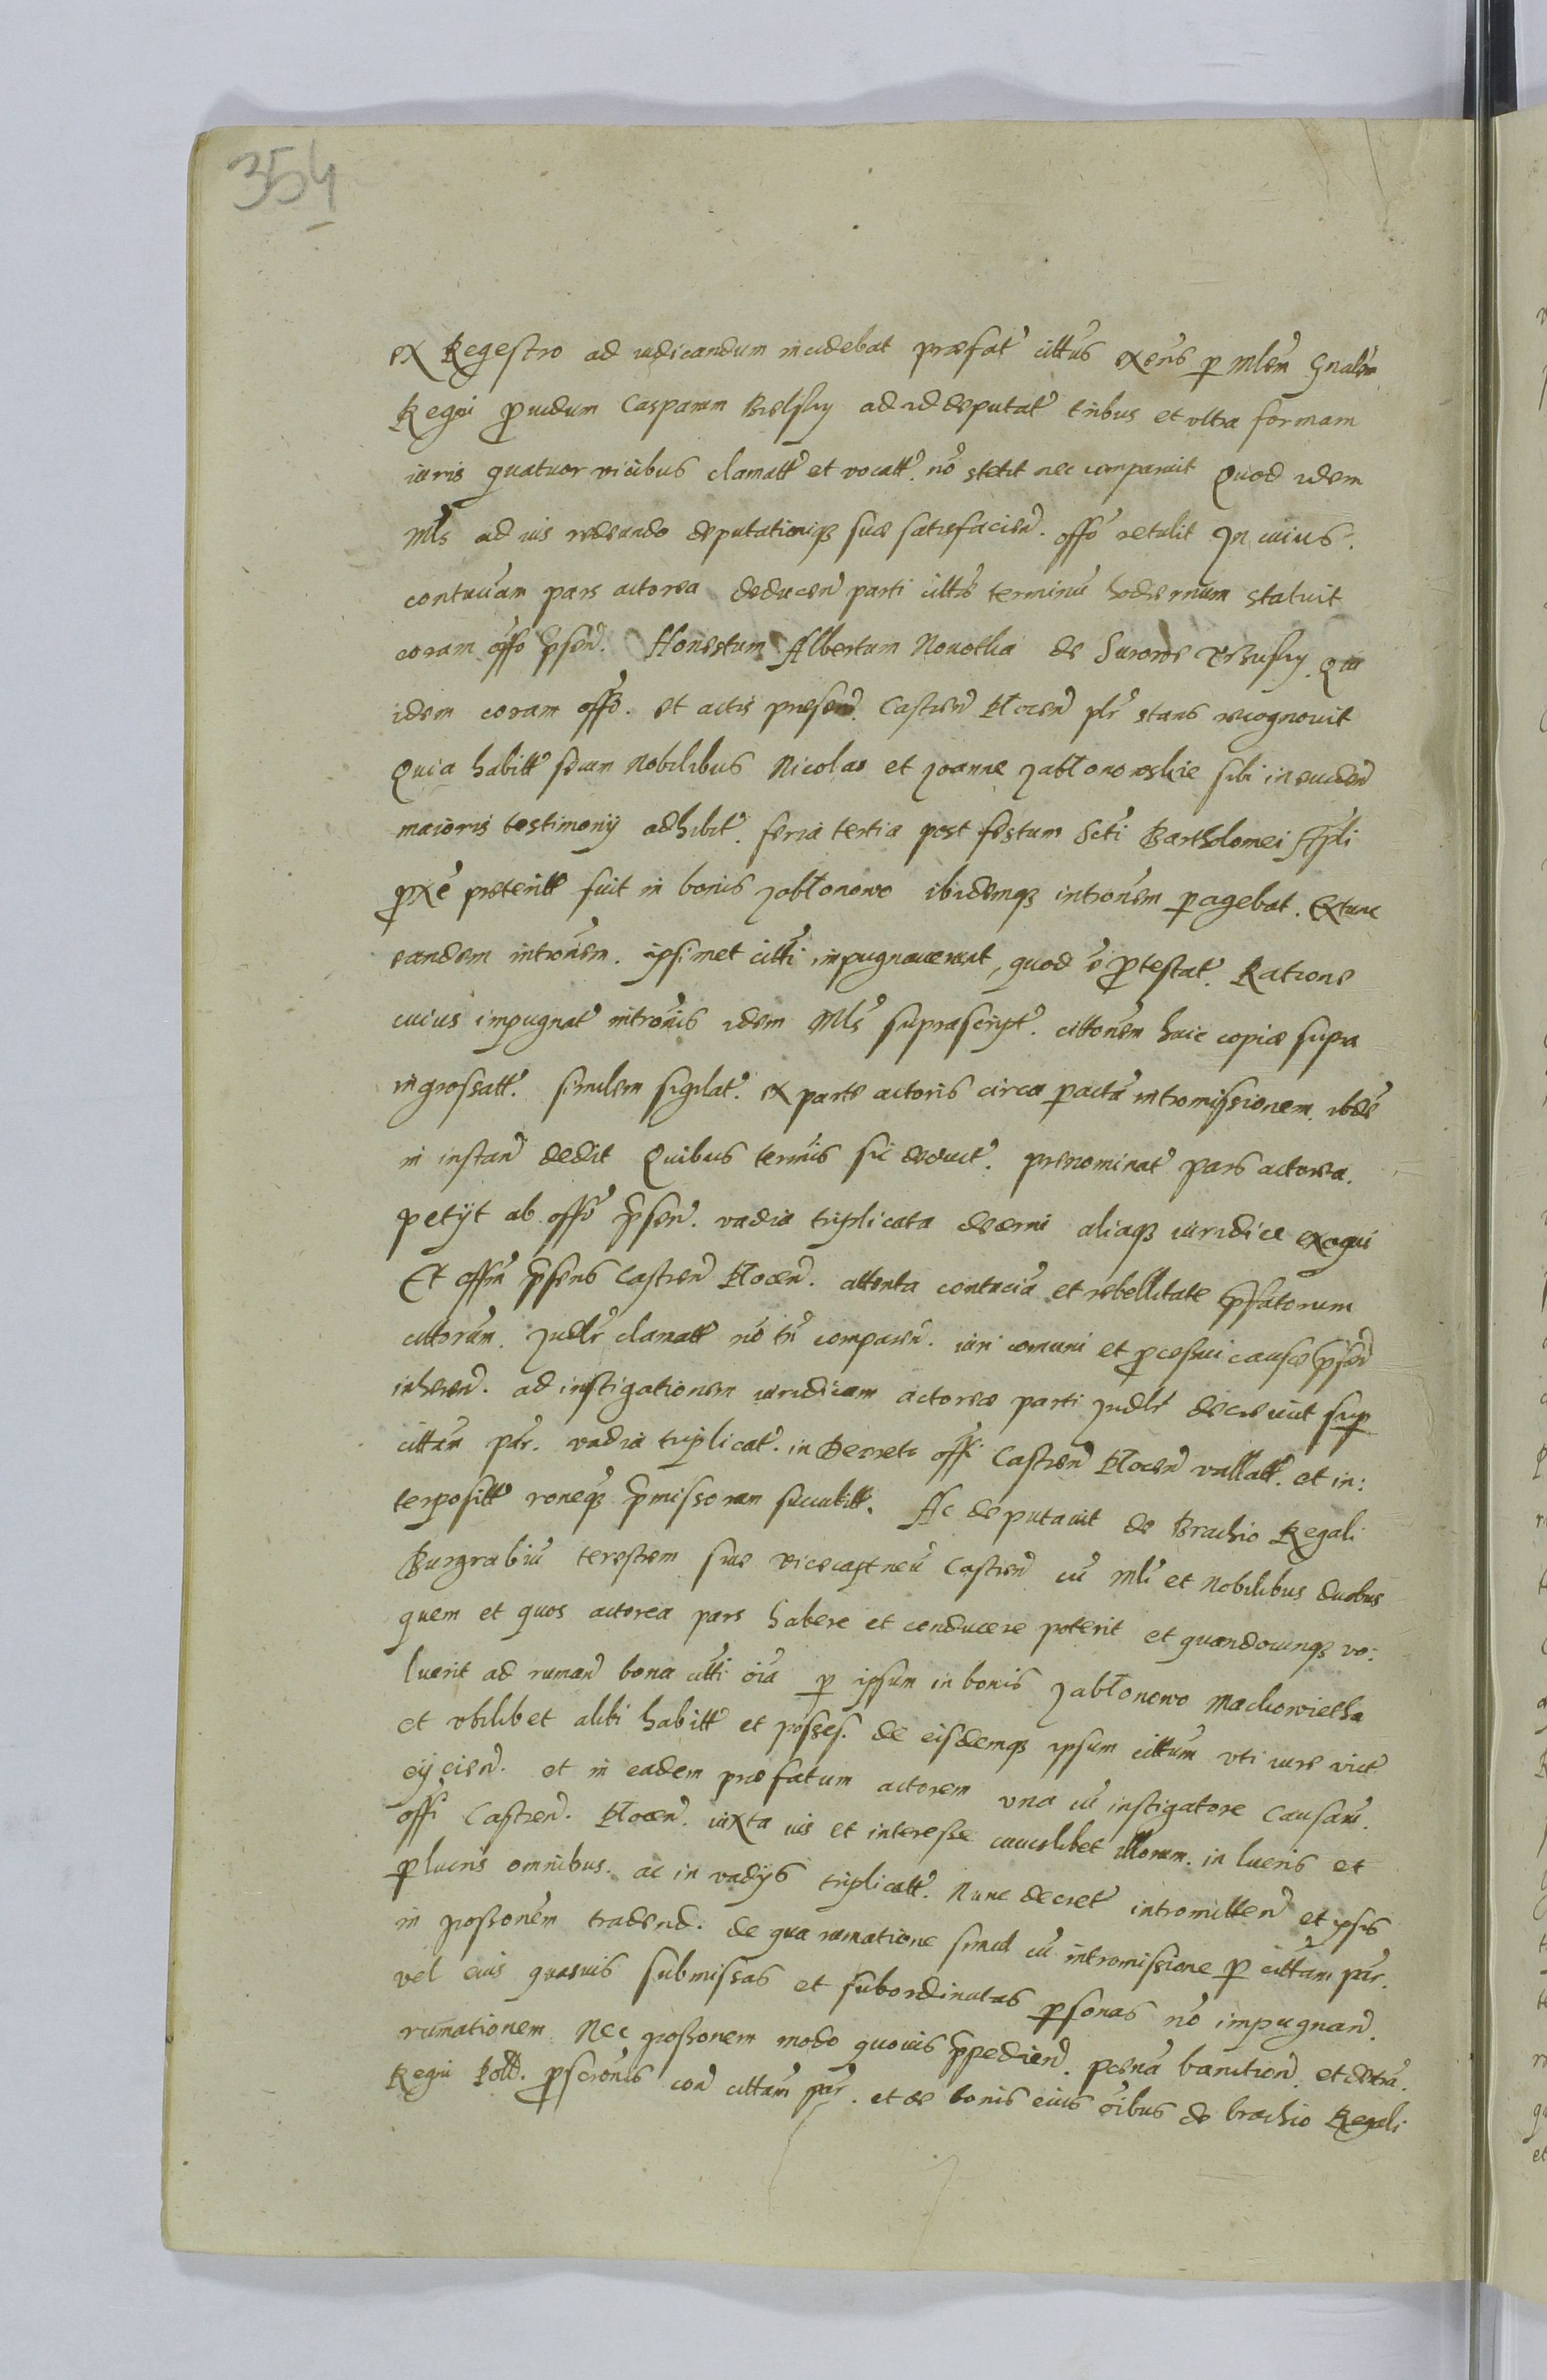 354
ex Regestro ad iudicandum incidebat præfat' citt'us exn's p mlem Gnalem
Regni p̱uidum Casparum Bielsky ad id deputat' tribus et vltra formam
iuris quatuor vicibus clamatt' et vocatt'. nō stetit nec comparuit Quod idem
Mls ad ius redeundo deputationiq̃ suæ satisfacien̄. offo retulit In cuius
contuciam pars actorea deducen̄ parti citt terminū hodiernum statuit
coram offo p̄sen̄. Honestum Albertum Novothka de Qui
idem coram offo. et actis presen̄. Castren̄ Plocen̄ plr stans recognovit
Quia habitt' secum Nobilibus Nicolao et Joanne Jabłonowskie sibi in euiden̄
maioris testimonij adhibit'. feria tertia post festum Scti Bartholomei Apli
p̄xe preteritt fuit in bonis Jabłonowo ibidemq̃ intronem p agebat. Extunc
eandem intronem. ipsimet citti impugnauerunt, quod ē p̄testat'. Ratione
cuius impugnat' intronis idem Mls suprascript'. cittonem huic copiæ supra
ingrossatt'. similem sigilat'. ex parte actoris circa pactā intromissionem. ibdē
in instan̄ dedit Quibus termis sic deduct'. prenominat' pars actorea.
petijt ab offo p̄sen̄. vadia triplicata decerni aliaq̃ iuridice exequi
Et offm p̄sens Castren̄ Plocen̄. attenta contucia et rebellitate p̄fatorum
cittorum. Judlr clamatt nō tn comparen̄. iuri comuni et p̄cessui causæ p̄sen̄
inheren̄. ad instigationem iuridicam actoreæ parti judlr decreuit sup
cittam par. vadia triplicat'. in Decreto offi Castren̄ Plocen̄ vallatt'. et in:
terpositt' roneq̃ p̄missorum succubitt. Ac deputauit de Brachio Regali
Burgrabiū terestrem siue vicecaptneū Castren̄ cū Mli et Nobilibus duobus
quem et quos actorea pars habere et conducere poterit et quandocunq̃ vo:
luerit ad ruman̄ bona citti oīa p ipsum in bonis Jabłonowo Mackowietha
et vbilibet alibi habitt' et posses. de eisdemq̃ ipsum cittum vti iure vict'
eijcien̄. et in eadem præfatum actorem vna cū instigatore Causarū.
offi Castren̄. Plocen̄. iuxta ius et interesse cuiuslibet illorum. in lucris et
p̱lucris omnibus. ac in vadijs triplicatt'. Nunc decret' intromitten̄ et ipsis
in possonem tradend. de qua rumatione simul cū intromissione p cittam par.
vel eius quasuis submissas et subordinatas p̱sonas nō impugnan̄.
rumationem. Nec possonem modo quouis p̄pedien̄. poena banition̄. et
Regni Poll. p̱scronis con̄ cittam par. et de bonis eius oībus de brachio Regali